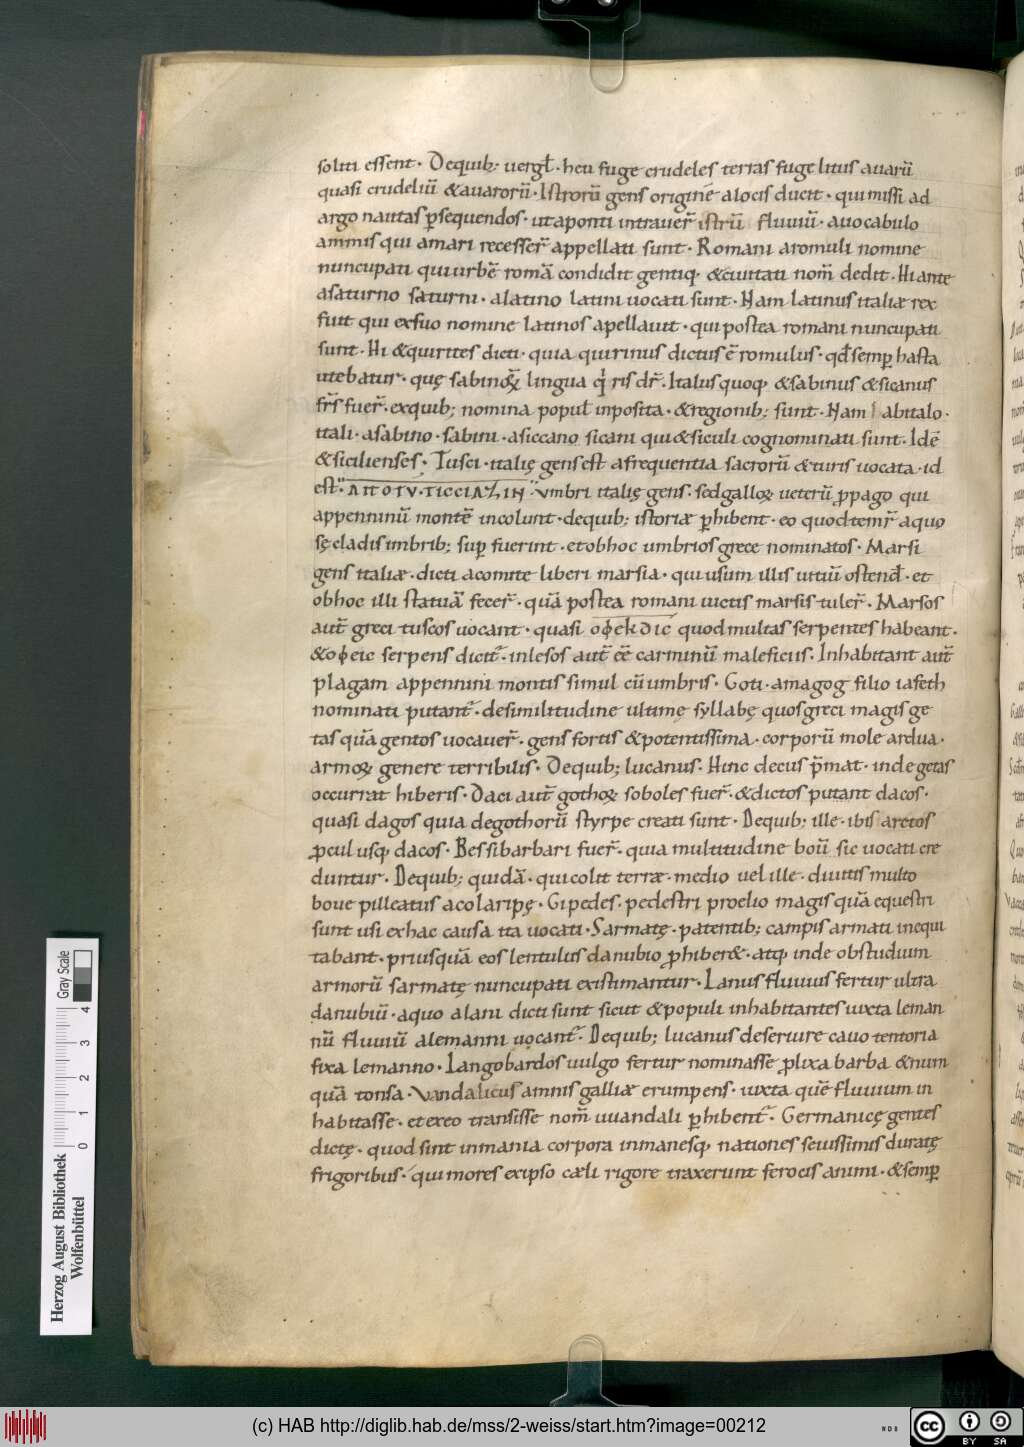 soliti essent · Dequib; uergl̄ · heu fuge crudeles terras fuge litus auarū
quasi crudeliū &auarorū · Istrorū gens originē alocis ducit · qui missi ad
argo nautas ꝑsequendos · ut aponti intrauer̄ istrū fluuiū · auocabulo
amnis qui amari recesser̄ appellati sunt · Romani aromuli nomine
nuncupati qui urbē romā condidit gentiq; &ciuitati nom̄ dedit · Hi ante
asaturno saturni · alatino latini uocati sunt · Nam latinus italiæ rex
fuit qui exsuo nomine latinos apellauit · qui postea romani nuncupati
sunt · Hi &quirites dicti · quia quirinus dictus ē romulus · qd̄ semꝑ hasta
utebatur · quę sabinoꝝ lingua q̇ris dr̄ · Italus quoq; &sabinus &sicanus
fr̄s fuer̄ · exquib; nomina popul̄ inposita · &regionib; sunt · Nam abitalo ·
itali · asabino · sabini · asiccano sicani qui &siculi cognominati sunt · Idē
&sicilienses · Tusci · italię gens est afrequentia sacrorū &turis uocata · id
umbri italię gens · sed galloꝝ ueterū ꝓpago qui
appenninū montē incolunt · dequib; istoriæ ꝑhibent · eo quod temr̄ aquo
sę cladis imbrib; suꝑ fuerint · et obhoc umbrios grece nominatos · Marsi
gens italiæ · dicti acomite liberi marsia · qui usum illis uitiū ostend̄ · et
obhoc illi statuā fecer̄ · quā postea romani uictis marsis tuler̄ · Marsos
aut̄ greci tuscos uocant · quasi οφεκδις quod multas serpentes habeant ·
&οφεις serpens dicit̄ · inlesos aut̄ eē carminū maleficus · Inhabitant aut̄
plagam appennini montis simul cū umbris · Goti · amagog filio iafeth
nominati putant̄ · desimilitudine ultimę syllabę quos greci magis ge
tas quā gentos uocauer̄ · gens fortis &potentissima · corporū mole ardua ·
armoꝝ genere terribilis · Dequib; lucanus · Hinc decus p̄mat · inde getas
occurrat hiberis · Daci aut̄ gothoꝝ soboles fuer̄ · &dictos putant dacos ·
quasi dagos quia degothorū styrpe creati sunt · Dequib; ille · ibis arctos
ꝓcul usq; dacos · Bessi barbari fuer̄ · quia multitudine boū sic uocati cre
duntur · Dequib; quidā · qui colit terræ · medio uel ille · diuitis multo
boue pilleatus acolaripę · Gipedes · pedestri proelio magis quā equestri
sunt usi exhac causa ita uocati · Sarmatę · patentib; campis armati inequi
tabant · priusquā eos lentulus danubio ꝓhiber& · atq; inde obstudium
armorū sarmatę nuncupati existimantur · Lanus fluuius fertur ultra
danubiū · aquo alani dicti sunt sicut &populi inhabitantes iuxta leman
nū fluuiū alemanni uocant̄ · Dequib; lucanus deseruire cauo tentoria
fixa lemanno · Langobardos uulgo fertur nominasse ꝓlixa barba &num
quā tonsa · Vandalicus amnis galliæ erumpens · iuxta quē fluuium in
habitasse · et exeo transisse nom̄ uuandali ꝑhibent̄ · Germanicę gentes
dictę · quod sint inmania corpora inmanesq; nationes seuissimis duratę
frigoribus · qui mores exipso cæli rigore traxerunt ferocis animi · &semꝑ
Herzog August Bibliothek
Wolfenbüttel
0 1 2 3 4
Gray Scale
(c) HAB http://diglib.hab.de/mss/2-weiss/start.htm?image=00212
cc BY SA